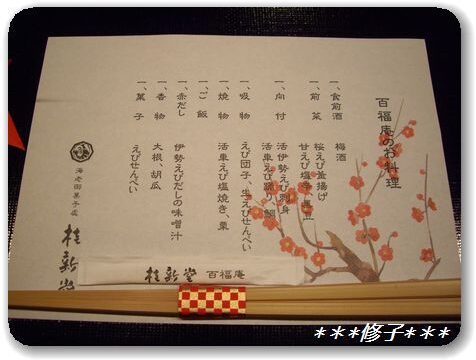 百福庵のお料理
一、食前酒 梅酒
一、前菜 桜えび釜揚げ
甘えび塩辛、
一、向付 活伊勢えび刺身
活車えび踊り、鯛
一、吸物 えび団子、生えびせんべい
一、焼物 活車えび塩焼き、栗
一、ご飯
一、赤だし 伊勢えびだしの味噌汁
一、香物 大根、胡瓜
一、菓子 えびせんべい
海老御菓子處
桂新堂
桂新堂 百福庵
***修子***